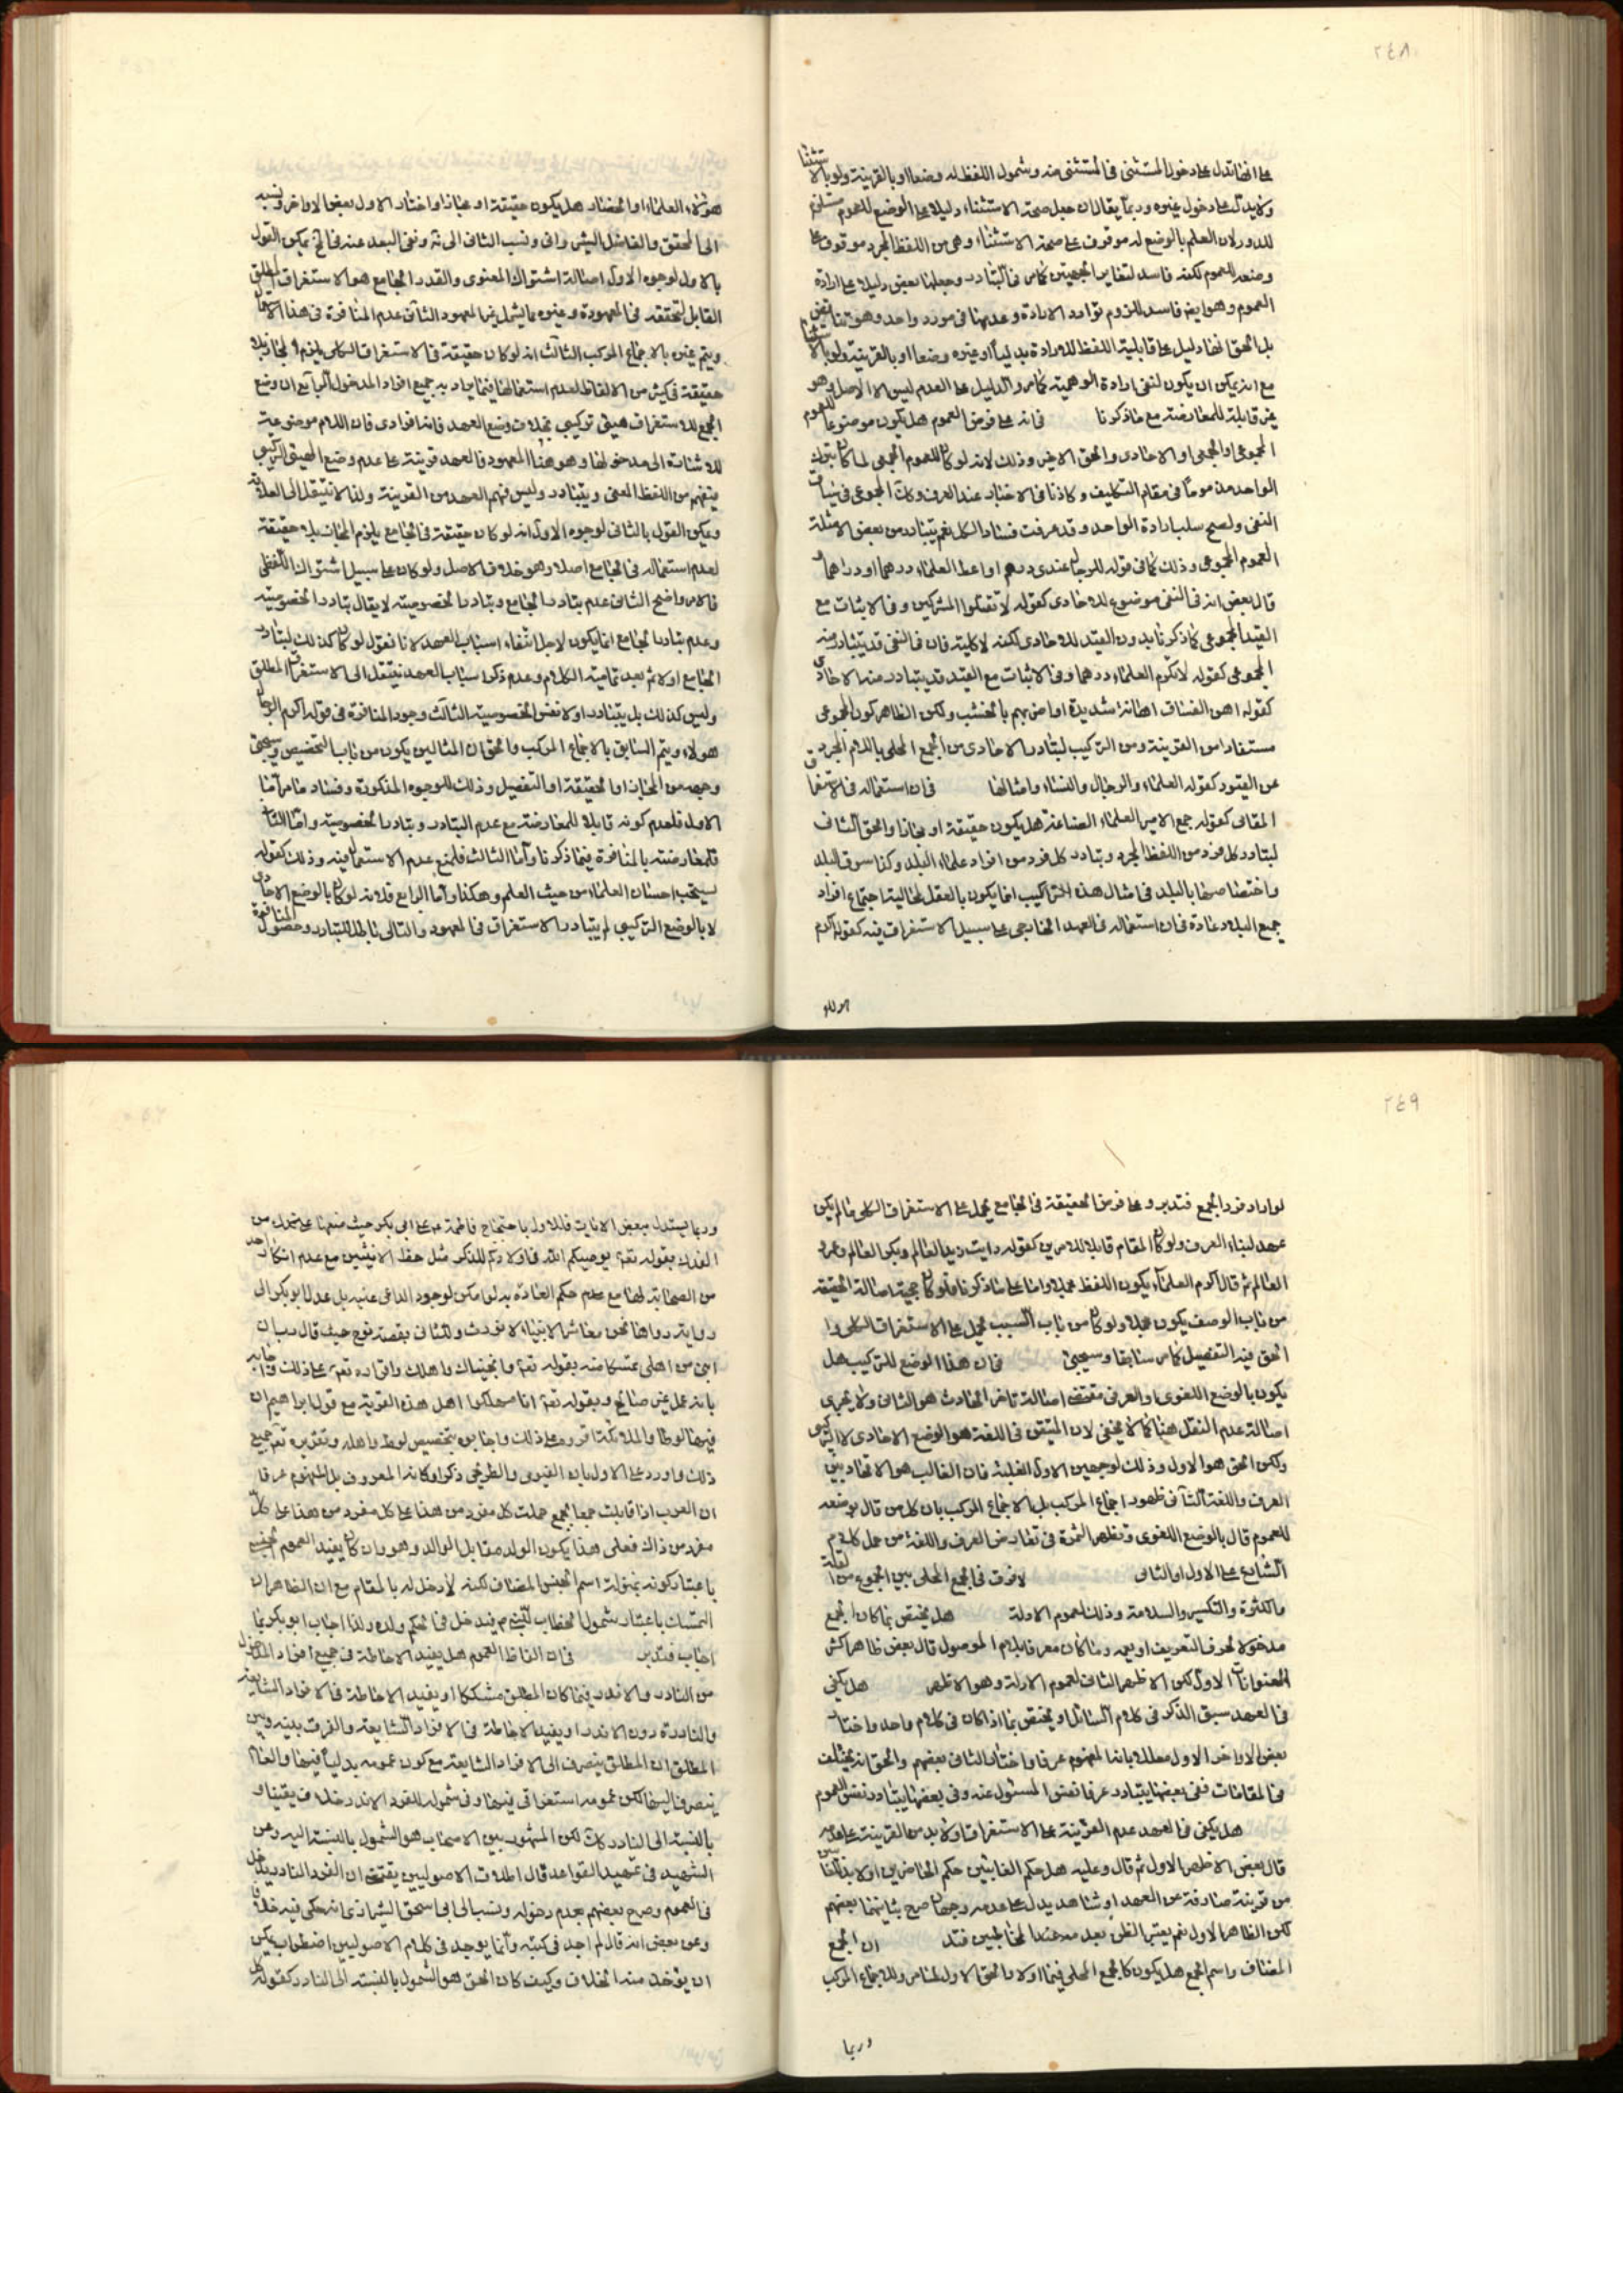 ٢٤٨
على انها تدل على دخول المستثنى في المستثنى منه وشمول اللفظ له وضعا او بالقرينة ولو بالاستثناء
ولا يدل على دخول غيره وربما يقال ان جعل صحة الاستثناء دليلا على الوضع للعموم مستلزم
للدور لان العلم بالوضع له موقوف على صحة الاستثناء وهي من اللفظ المجرد موقوف على
وضعه للعموم لكنه فاسد لتغاير الجهتين كما مر في التبادر وجعلها بعض دليلا على ارادة
العموم وهو ايض فاسد للزوم توارد الارادة وعدمها في مورد واحد وهو تناقض
بل الحق انها دليل على قابلية اللفظ للارادة بدلياً او غيره وضعا او بالقرينة ولو بالاستثناء
مع انه يمكن ان يكون لنفي ارادة الوهمية كما مر والدليل على العدم ليس الا الاصل وهو
غير قابلة للمعارضة مع ما ذكرنا فانه على فرض العموم هل يكون موضوعا للعموم
المجموعي او الجمعي او الاحادي والحق الاخير وذلك لانه لو كان للعموم الجمعي لما كان بترك
الواحد مذموماً في مقام التكليف وكاذبا في الاخبار عند العرف وكك المجموعي في سياق
النفي ولصح سلب ارادة الواحد وقد عرفت فساد الكل نعم يتبادر من بعض الامثلة
العموم المجموعي وذلك كما في قوله للرجال عندي درهم او اعط العلماء درهما او دراهما و
قال بعض انه في النفي موضوع للاحادي كقوله لا تقتلوا المشركين وفي الاثبات مع
القيد المجموعي كما ذكرنا بدون القيد للاحادي لكنه لا كلية فان في النفي قد يتبادر منه
المجموعي كقوله لا تكرم العلماء درهما وفي الاثبات مع القيد قد يتبادر منه الاحادي
كقوله اهن الفساق اهانة شديدة او اضربهم بالخشب ولكن الظاهر كون المجموعي
مستفادا من القرينة ومن التركيب لتبادر الاحادي من الجمع المحلى باللام المجرد
عن القيود كقوله العلماء والرجال والنساء وامثالها فان استعماله في الاستغراق
المقامي كقوله جمع الامير العلماء الصاغة هل يكون حقيقة او مجازا والحق الثاني
لتبادر كل فرد من اللفظ المجرد وتبادر كل فرد من افراد علماء البلد وكذا سوق البلد
واختصاصها بالبلد في امثال هذه التراكيب انما يكون بالعقل لمحالية اجتماع افراد
جميع البلاد عادة فان استعماله في العهد الخارجي على سبيل الاستغراق فيه كقوله اكرم
هؤلاء
هؤلاء العلماء او الحضار هل يكون حقيقة او مجازا واختار الاول بعض الاواخر ونسبه
الى المحقق والفاضل الشيرواني ونسب الثاني الى ثه ونفى البعد عنه في لم يمكن القول
بالاول لوجوه الاول اصالة اشتراك المعنوي والقدر الجامع هو الاستغراق المطلق
القابل لتحققه في المعهودة وغيره مما يشمل غير المعهود الثاني عدم المنافرة في هذا الاستعمال
ويتم غيره بالاجماع المركب الثالث انه لو كان حقيقة في الاستغراق الكلي يلزم المجاز بلا
حقيقة في كثير من الالفاظ لعدم استعمالها فيما يراد به جميع افراد المدخول الرابع ان وضع
الجمع للاستغراق هيئي تركيبي بخلاف وضع العهد فانه افرادي فان اللام موضوعة
للاشارة الى مدخولها وهو هنا المعهود فالعهد قرينة على عدم وضع الهيئي التركيبي
يتفهم من اللفظ المعنى ويتبادر وليس فهم العهد من القرينة ولذا لا ينتقل الى العلاقة
ويمكن القول بالثاني لوجوه الاول انه لو كان حقيقة في الجامع يلزم المجاز بلا حقيقة
لعدم استعماله في الجامع اصلا وهو خلاف الاصل ولو كان على سبيل اشتراك اللفظي
فالامر واضح الثاني عدم تبادر الجامع وتبادر الخصوصية لا يقال تبادر الخصوصية
وعدم تبادر الجامع انما يكون لاجل انتفاء اسباب العهد لانا نقول لو كان كذلك لتبادر
الجامع اولا ثم بعد تمامية الكلام وعدم ذكر اسباب العهد ينتقل الى الاستغراق المطلق
وليس كذلك بل يتبادر اولا نفس الخصوصية الثالث وجود المنافرة في قوله اكرم الرجال
هؤلاء ويتم السابق بالاجماع المركب والحق ان المثالين يكون من باب التخصيص وسيجئ
وجهه من المجاز او الحقيقة او التفصيل وذلك للوجوه المذكورة وفساد ما مر اما
الاول فلعدم كونه قابلا للمعارضة مع عدم التبادر وتبادر الخصوصية واما الثاني
فلمعارضته بالمنافرة فيما ذكرنا واما الثالث فلمنع عدم الاستعمال فيه وذلك كقوله
يستحب احسان العلماء من حيث العلم وهكذا واما الرابع فلانه لو كان بالوضع الاحادي
لا بالوضع التركيبي لم يتبادر الاستغراق في المعهود والتالي باطل للتبادر وحصول المنافرة
٢٤٩
لو اراد فرد الجمع فتدبر وعلى فرض الحقيقة في الجامع يحمل على الاستغراق الكلي ما لم يكن
عهد لبناء العرف ولو كان المقام قابلا للامرين كقوله رايت زيد العالم وبكر العالم وعمرو
العالم ثم قال اكرم العلماء يكون اللفظ مجملا واما على ما ذكرنا فلو كان حجية اصالة الحقيقة
من باب الوصف يكون مجملا ولو كان من باب السبب يحمل على الاستغراق الكلي وا
الحق فيه التفصيل كما مر سابقا وسيجئ فان هذا الوضع للتركيب هل
يكون بالوضع اللغوي او العرفي مقتضى اصالة تاخر الحادث هو الثاني ولا يجري
اصالة عدم النقل هنا كما لا يخفى لان المتيقن في اللغة هو الوضع الاحادي لا التركيبي
ولكن الحق هو الاول وذلك لوجهين الاول الغلبة فان الغالب هو الاتحاد بين
العرف واللغة الثاني ظهور اجماع المركب بل الاجماع المركب بان كل من قال بوضعه
للعموم قال بالوضع اللغوي وتظهر الثمرة في تعارض العرف واللغة من حمل كلام
الشارع على الاول او الثاني لا فرق في الجمع المحلى بين الجموع من القلة
والكثرة والتكسير والسلامة وذلك لعموم الادلة هل يختص بما كان الجمع
مدخولا لحرف التعريف او يعمه وما كان معرفا بلام الموصول قال بعض ظاهر اكثر
العنوانات الاول لكن الاظهر الثاني لعموم الادلة وهو الاظهر هل يكفي
في العهد سبق الذكر في كلام السائل او يختص بما اذا كان في كلام واحد واختار
بعض الاواخر الاول معللا بانه المفهوم عرفا واختار الثاني بعضهم والحق انه يختلف
في المقامات ففي بعضها يتبادر عرفا نفس المسئول عنه وفي بعضها يتبادر نفس العموم
هل يكفي في العهد عدم القرينة على الاستغراق او لا بد من القرينة على عدمه
قال بعض الاظهر الاول ثم قال وعليه هل حكم الغائبين حكم الحاضرين او لا بد للغائبين
من قرينة صارفة عن العهد او شاهد يدل على عدمه وجهان صرح بثانيهما بعضهم
لكن الظاهر الاول نعم يعتبر الظن بعدمه عند المخاطبين فتد ان الجمع
المضاف واسم الجمع هل يكون كالجمع المحلى فيها اولا والحق الاول لما مر وللاجماع المركب
وربما
وربما يستدل ببعض الايات فللاول باحتجاج فاطمة ع على ابي بكر حيث منعها
الفدك بقوله تعم يوصيكم الله في اولادكم للذكر مثل حظ الانثيين مع عدم انكار احد
من الصحابة لها مع عدم حكم العادة به لو امكن لوجود الداعي عنه بل عدل ابو بكر الى
رواية رواها نحن معاشر الانبياء لا نورث وللثاني بقصة نوح حيث قال رب ان
ابني من اهلي تمسكا منه بقوله تعم وانجيناك واهلك واقراره تعم على ذلك واجابه
بانه عمل غير صالح وبقوله تعم انا مهلكوا اهل هذه القرية مع قول ابراهيم ان
فيها لوطا والملائكة اقروه على ذلك واجابوه بتخصيص لوط واهله وتقريره تعم جميع
ذلك واورد على الاول بان القيومي والطرحي ذكرا وكانه المعروف بل المفهوم عرفا
ان العرب اذا قابلت جمعا بجمع حملت كل مفرد من هذا على كل مفرد من هذا على كل
مفرد من ذاك فعلى هذا يكون الولد مقابل الوالد وهو وان كان يفيد العموم
باعتبار كونه بمنزلة اسم الجنس المضاف لكنه لا دخل له بالمقام مع ان الظاهر ان
التمسك باعتبار شمول الخطاب للنبي ص فيدخل في الحكم ولده ولذا اجاب ابو بكر بما
اجاب فتدبر فان الفاظ العموم هل يفيد الاحاطة في جميع افراد المدخول
من النادر والاندر فيما كان المطلق مشككا او يفيد الاحاطة في الافراد الشايعة
والنادرة دون الاندر او يفيد الاحاطة في الافراد الشايعة والفرق بينه وبين
المطلق ان المطلق ينصرف الى الافراد الشايعة مع كون عمومه بدلياً فيها والعام
ينصرف اليها لكن عمومه استغراقي فيها وفي شموله للفرد الاندر خلاف يقينا و
بالنسبة الى النادر كك لكن المشهور بين الاصحاب هو الشمول بالنسبة اليه وعن
الشهيد في تمهيد القواعد قال اطلاق الاصوليين يقتضي ان الفرد النادر يدخل
في العموم وصرح بعضهم بعدم دخوله ونسب الى ابي اسحق الشيرازي انه حكى فيه خلافا
وعن بعض انه قال لم اجد في كتبه وانما يوجد في كلام الاصوليين اضطراب يمكن
ان يؤخذ منه الخلاف وكيف كان الحق هو الشمول بالنسبة الى النادر كقوله